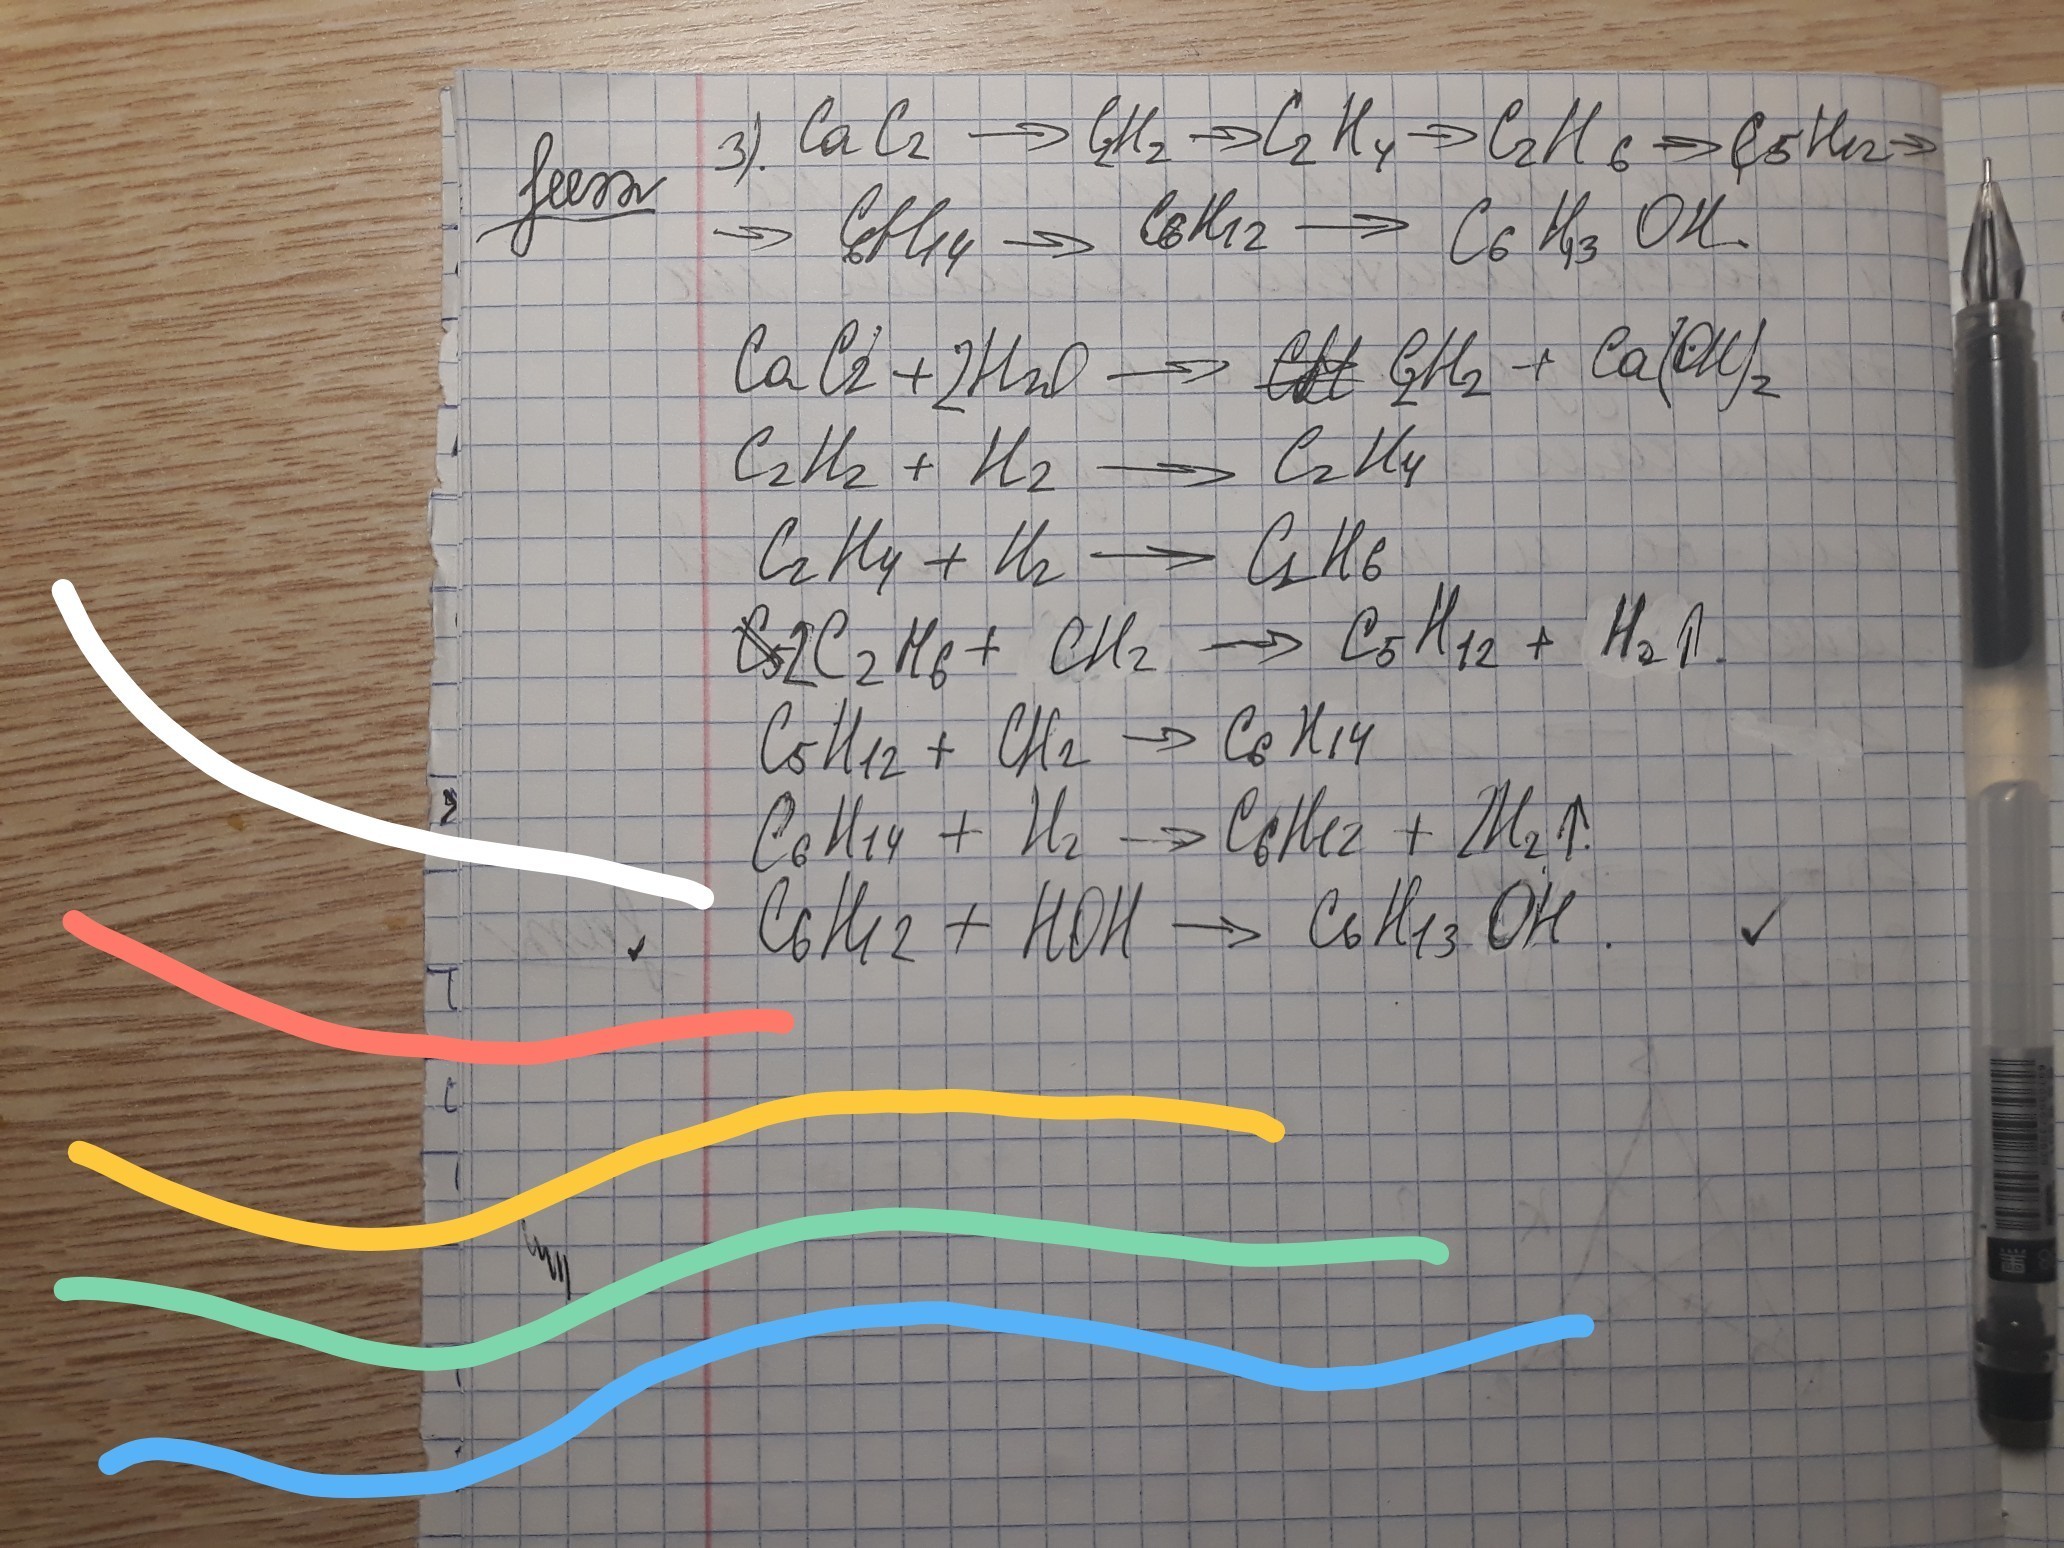 3). CaC2 → C2H2 → C2H4 → C2H6 → C5H12 →
→ C6H14 → C6H12 → C6H13OH.
CaC2 + 2H2O → C2H2 + Ca(OH)2
C2H2 + H2 → C2H4
C2H4 + H2 → C2H6
2C2H6 + CH2 → C5H12 + H2↑.
C5H12 + CH2 → C6H14
C6H14 + H2 → C6H12 + 2H2↑.
C6H12 + HOH → C6H13OH.